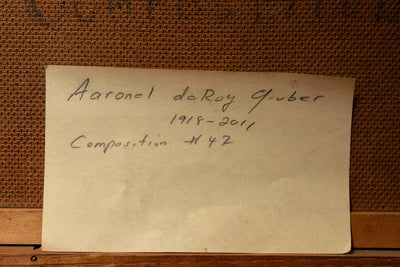 Aaronel deRoy Gruber
1918-2011
Composition #42